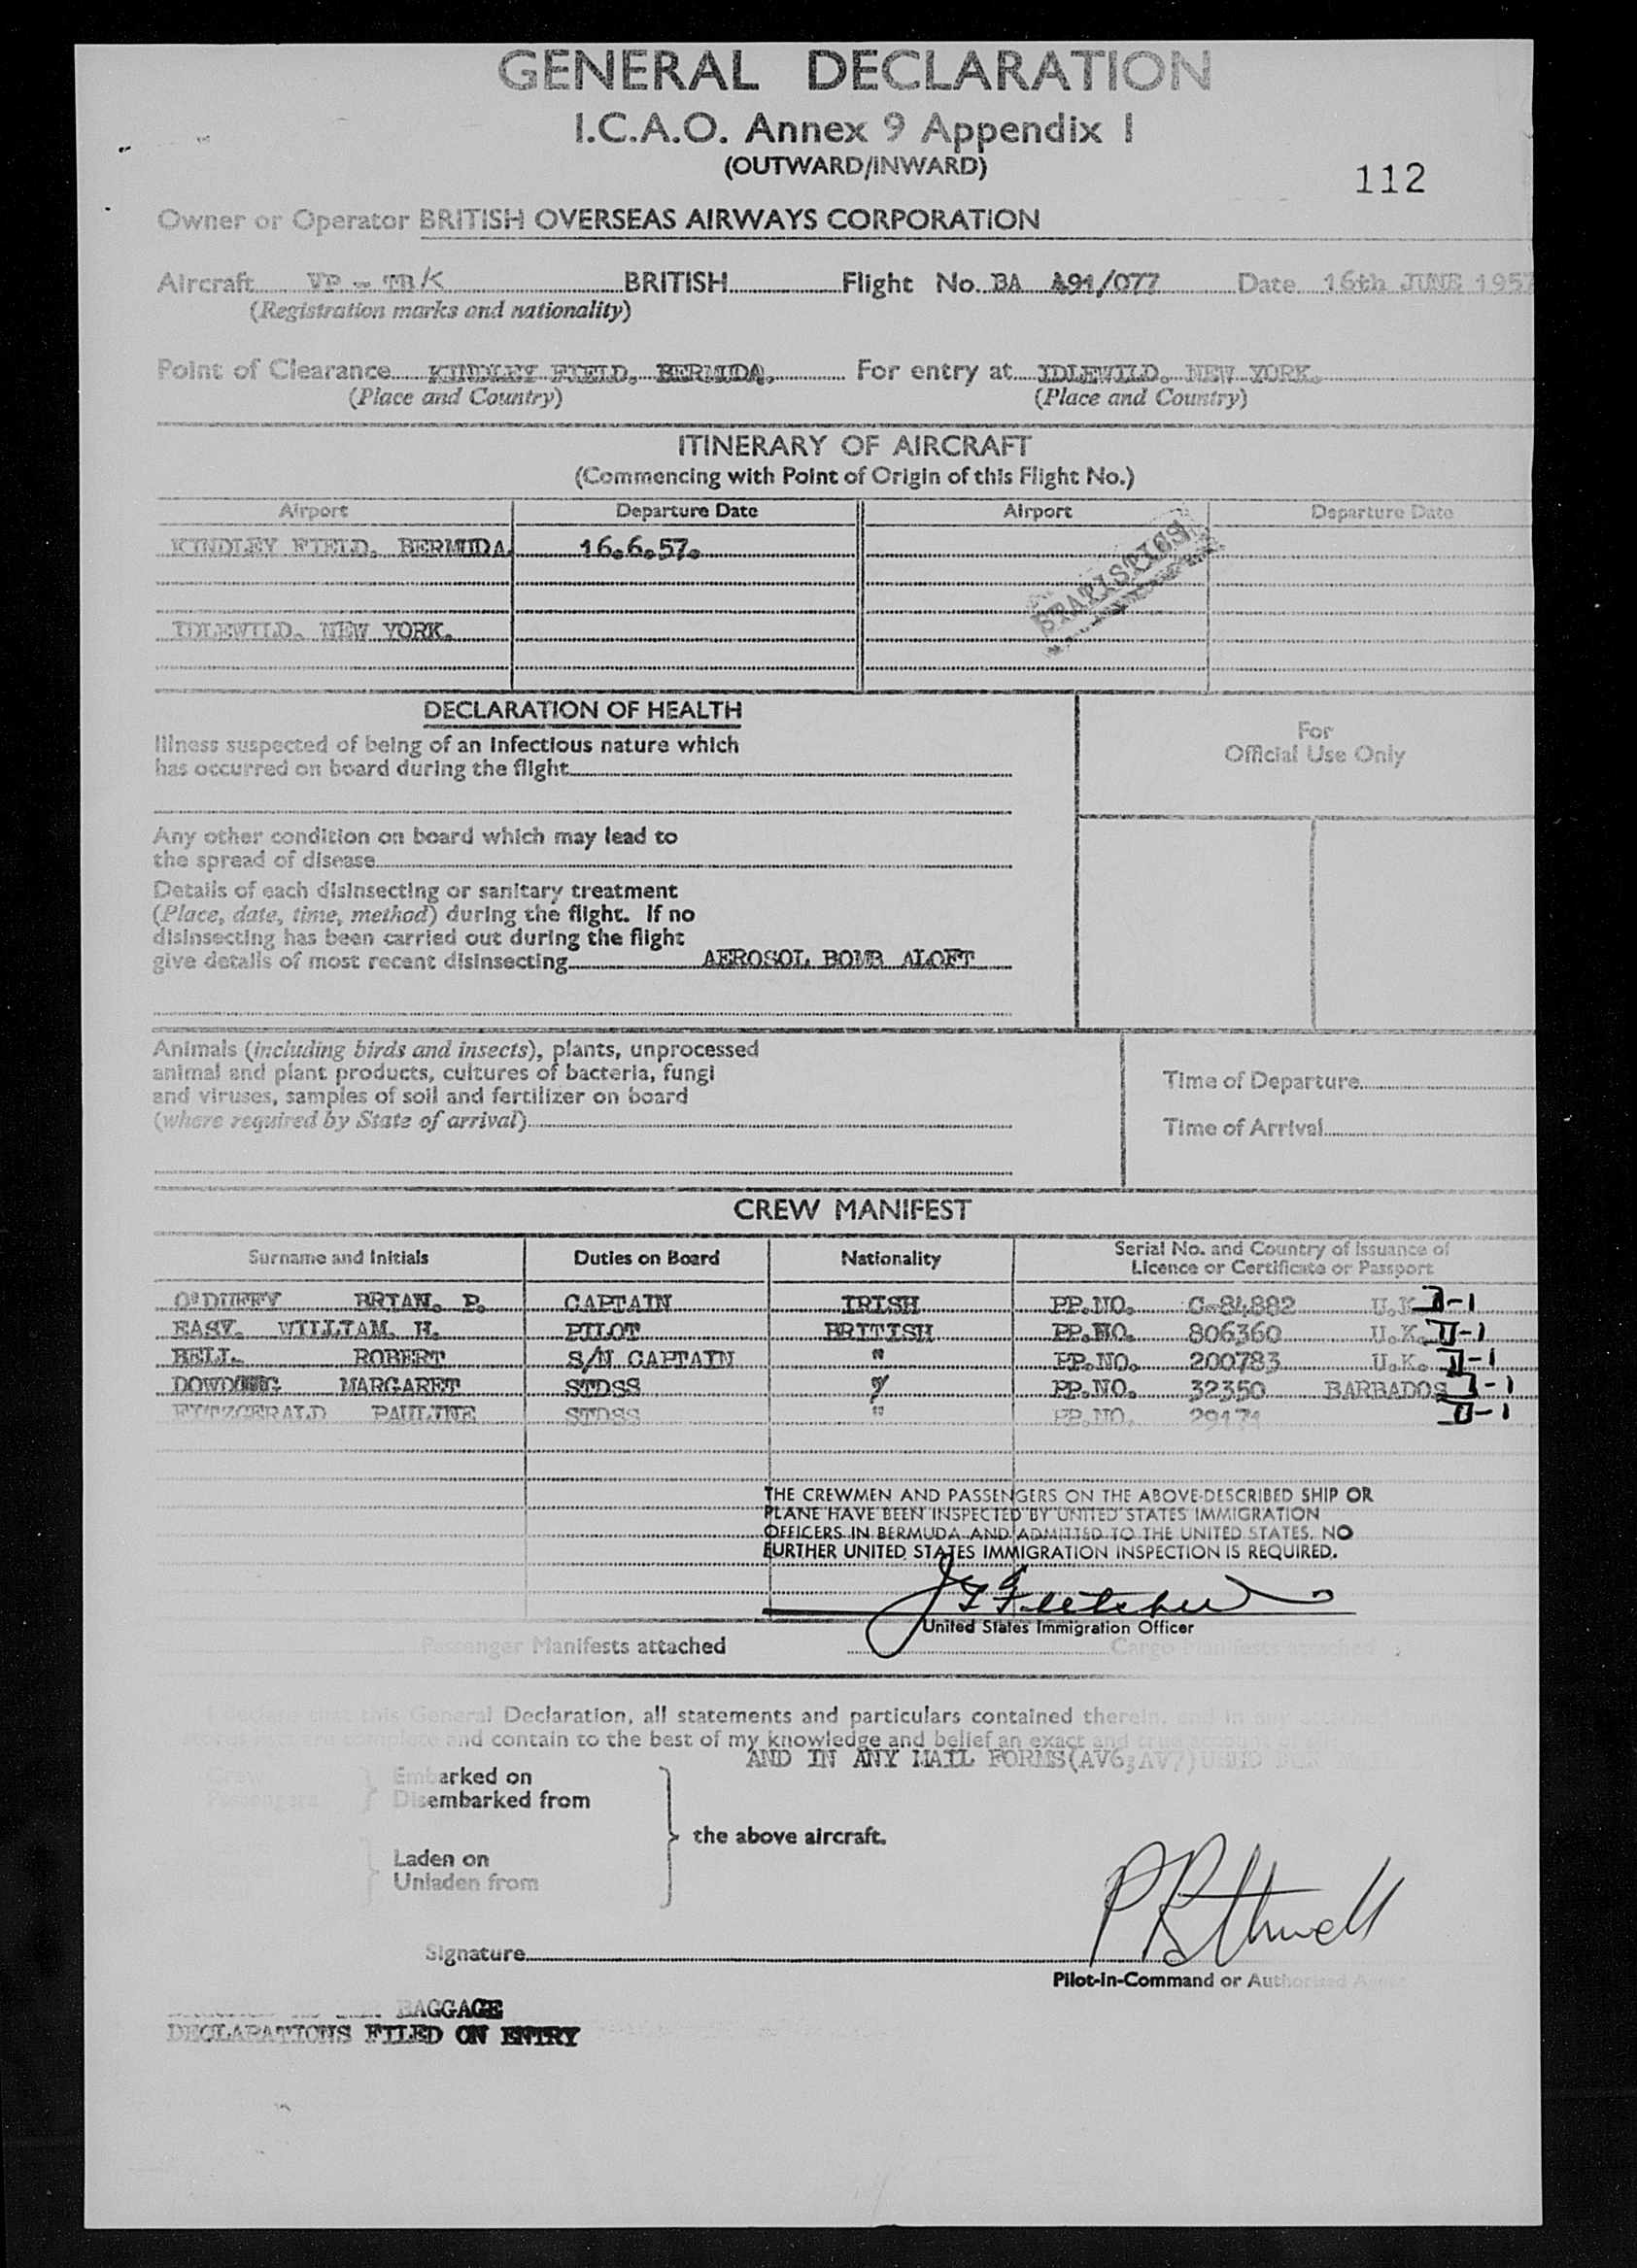 GENERAL DECLARATION
I.C.A.O. Annex 9 Appendix I
(OUTWARD/INWARD)
112
Owner or Operator BRITISH OVERSEAS AIRWAYS CORPORATION
Aircraft VP - TBK BRITISH Flight No. BA 491/077 Date 16th JUNE 1957
(Registration marks and nationality)
Point of Clearance KINDLEY FIELD, BERMUDA. For entry at IDLEWILD, NEW YORK.
(Place and Country) (Place and Country)
ITINERARY OF AIRCRAFT
(Commencing with Point of Origin of this Flight No.)
Airport Departure Date Airport Departure Date
KINDLEY FIELD, BERMUDA. 16.6.57.
STATISTICS
IDLEWILD, NEW YORK.
DECLARATION OF HEALTH
Illness suspected of being of an infectious nature which
has occurred on board during the flight
For
Official Use Only
Any other condition on board which may lead to
the spread of disease
Details of each disinsecting or sanitary treatment
(Place, date, time, method) during the flight. If no
disinsecting has been carried out during the flight
give details of most recent disinsecting AEROSOL BOMB ALOFT
Animals (including birds and insects), plants, unprocessed
animal and plant products, cultures of bacteria, fungi
and viruses, samples of soil and fertilizer on board
(where required by State of arrival)
Time of Departure
Time of Arrival
CREW MANIFEST
Surname and Initials Duties on Board Nationality Serial No. and Country of Issuance of
Licence or Certificate or Passport
O'DUFFY BRIAN. P. CAPTAIN IRISH PP.NO. C-84882 U.K. D-1
EASY. WILLIAM. H. PILOT BRITISH PP.NO. 806360 U.K. D-1
BELL. ROBERT S/N CAPTAIN " PP.NO. 200783 U.K. D-1
DOWDING MARGARET STDSS " PP.NO. 32350 BARBADOS D-1
FITZGERALD PAULINE STDSS " PP.NO. 29174 D-1
THE CREWMEN AND PASSENGERS ON THE ABOVE-DESCRIBED SHIP OR
PLANE HAVE BEEN INSPECTED BY UNITED STATES IMMIGRATION
OFFICERS IN BERMUDA AND ADMITTED TO THE UNITED STATES. NO
FURTHER UNITED STATES IMMIGRATION INSPECTION IS REQUIRED.
J Fletcher
United States Immigration Officer
Passenger Manifests attached Cargo Manifests attached
I declare that this General Declaration, all statements and particulars contained therein, and in any
complete and contain to the best of my knowledge and belief an exact and true account
AND IN ANY MAIL FORMS(AV6;AV7)USED
Crew Embarked on
Passengers Disembarked from
the above aircraft.
Laden on
Unladen from
Signature
Pilot-in-Command or Authorized Agent
BAGGAGE
DECLARATIONS FILED ON ENTRY